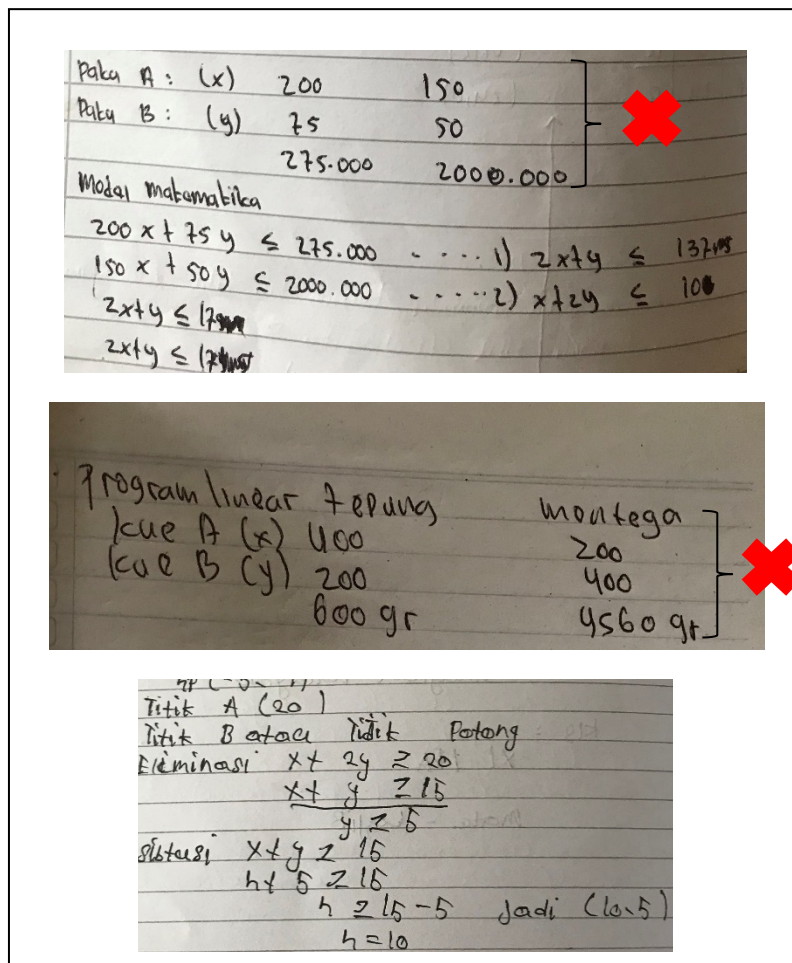 Paku A : (x) 200 150
Paku B : (y) 75 50
275.000 2000.000
Model matematika
200 x + 75 y ≤ 275.000 ..... 1) 2x+y ≤
150 x + 50 y ≤ 2000.000 ..... 2) x+2y ≤ 10
2x+y ≤
2x+y ≤
Program linear tepung montega
kue A (x) 400 200
kue B (y) 200 400
600 gr 4560 gr
Titik A (20)
Titik B atau Titik Potong
Eliminasi x+ 2y ≥ 20
x+ y ≥ 15
y ≥ 5
x+y ≥ 15
h+ 5 ≥ 15
h ≥ 15-5 Jadi (10.5)
h = 10